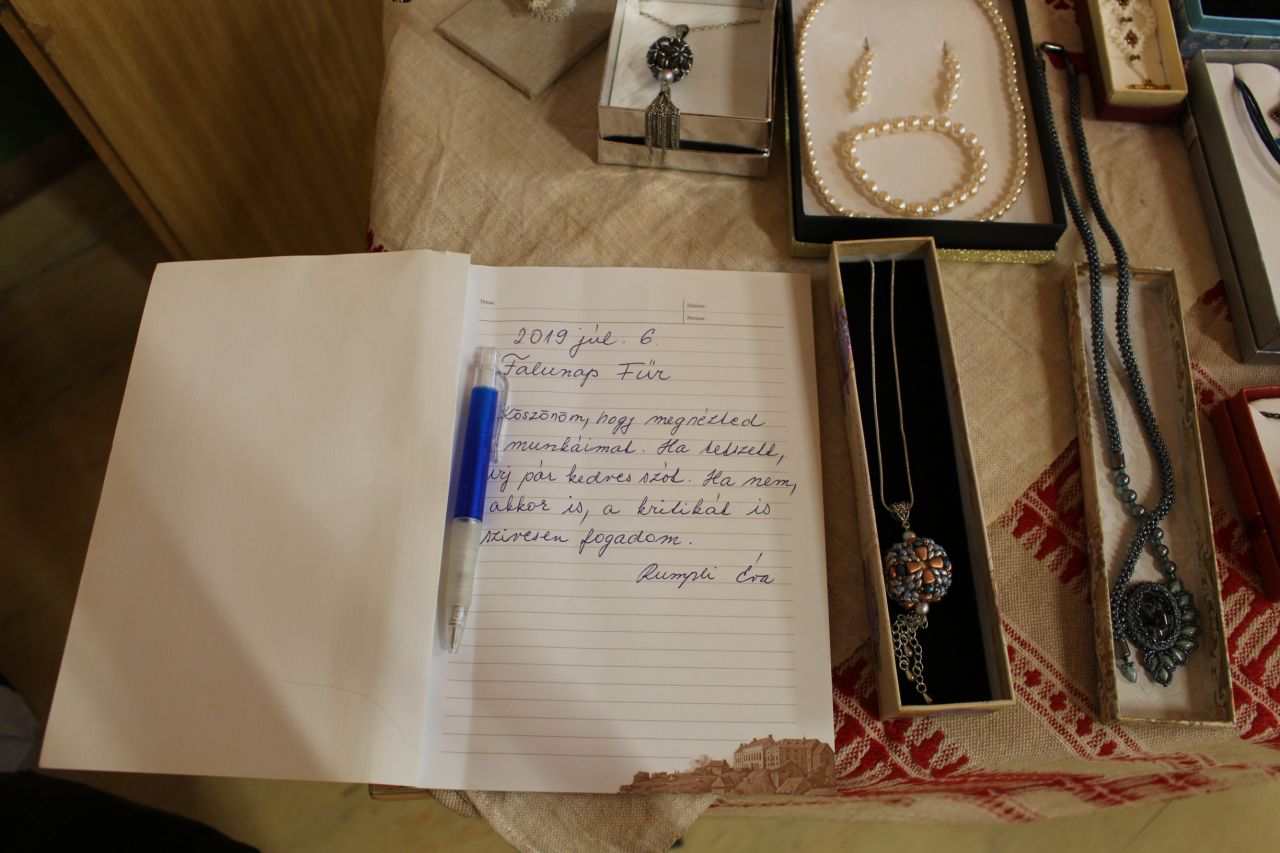 Téma:
Dátum:
2019 júl. 6.
Falunap Fűr
Köszönöm, hogy megnézted
munkáimat. Ha tetszett,
írj pár kedves szót. Ha nem,
akkor is, a kritikát is
szívesen fogadom.
Rumpli Éva